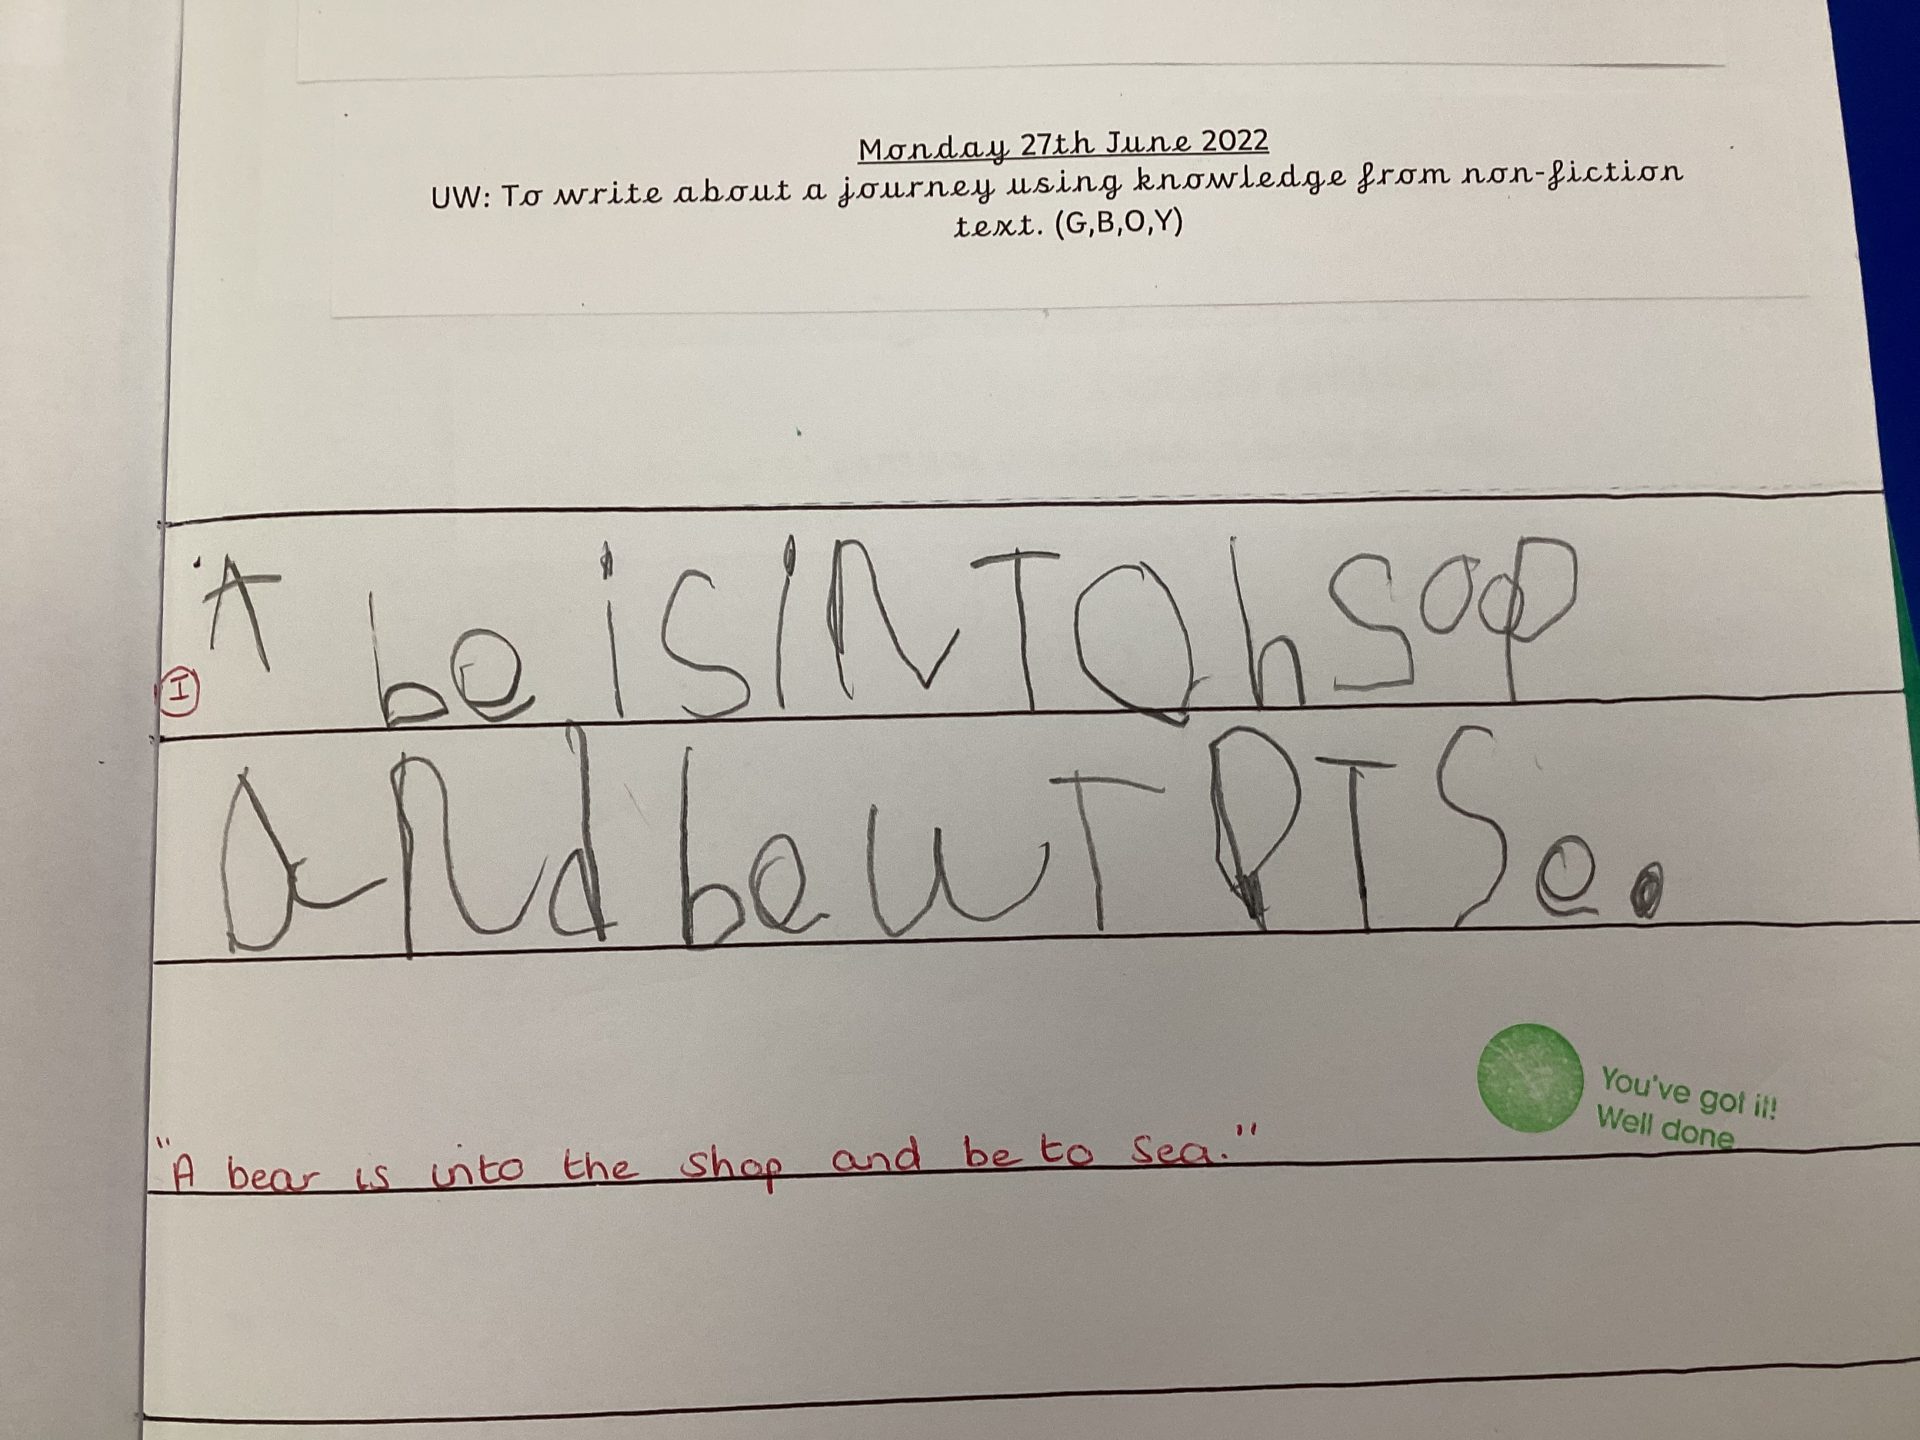 Monday 27th June 2022
UW: To write about a journey using knowledge from non-fiction
text. (G,B,O,Y)
A be is iN Tah sop
I
aNd be wT PT Se.
You've got it!
Well done
"A bear is into the shop and be to sea."